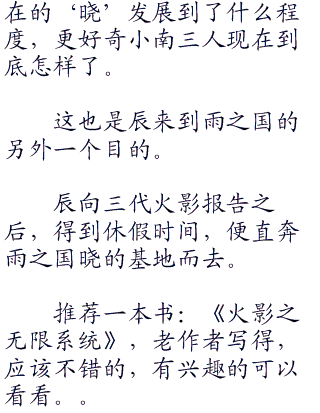 在的‘晓’发展到了什么程
度，更好奇小南三人现在到
底怎样了。
这也是辰来到雨之国的
另外一个目的。
辰向三代火影报告之
后，得到休假时间，便直奔
雨之国晓的基地而去。
推荐一本书：《火影之
无限系统》，老作者写得，
应该不错的，有兴趣的可以
看看。。